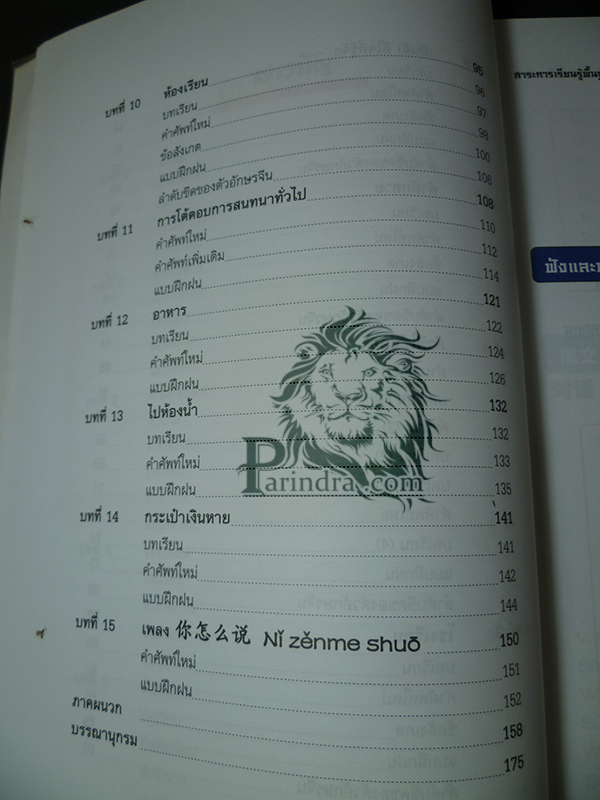 บทที่ 10 ห้องเรียน 95
บทเรียน 96
คำศัพท์ใหม่ 97
ข้อสังเกต 98
แบบฝึกฝน 100
ลำดับขีดของตัวอักษรจีน 106
บทที่ 11 การโต้ตอบการสนทนาทั่วไป 108
คำศัพท์ใหม่ 110
คำศัพท์เพิ่มเติม 112
แบบฝึกฝน 114
บทที่ 12 อาหาร 121
บทเรียน 122
คำศัพท์ใหม่ 124
แบบฝึกฝน 126
บทที่ 13 ไปห้องน้ำ 132
บทเรียน 132
คำศัพท์ใหม่ 133
แบบฝึกฝน 135
บทที่ 14 กระเป๋าเงินหาย 141
บทเรียน 141
คำศัพท์ใหม่ 142
แบบฝึกฝน 144
บทที่ 15 เพลง 你怎么说 Nǐ zěnme shuō 150
คำศัพท์ใหม่ 151
แบบฝึกฝน 152
ภาคผนวก 158
บรรณานุกรม 175
Parindra.com
สาระการเรียนรู้พื้น
ฟังและ